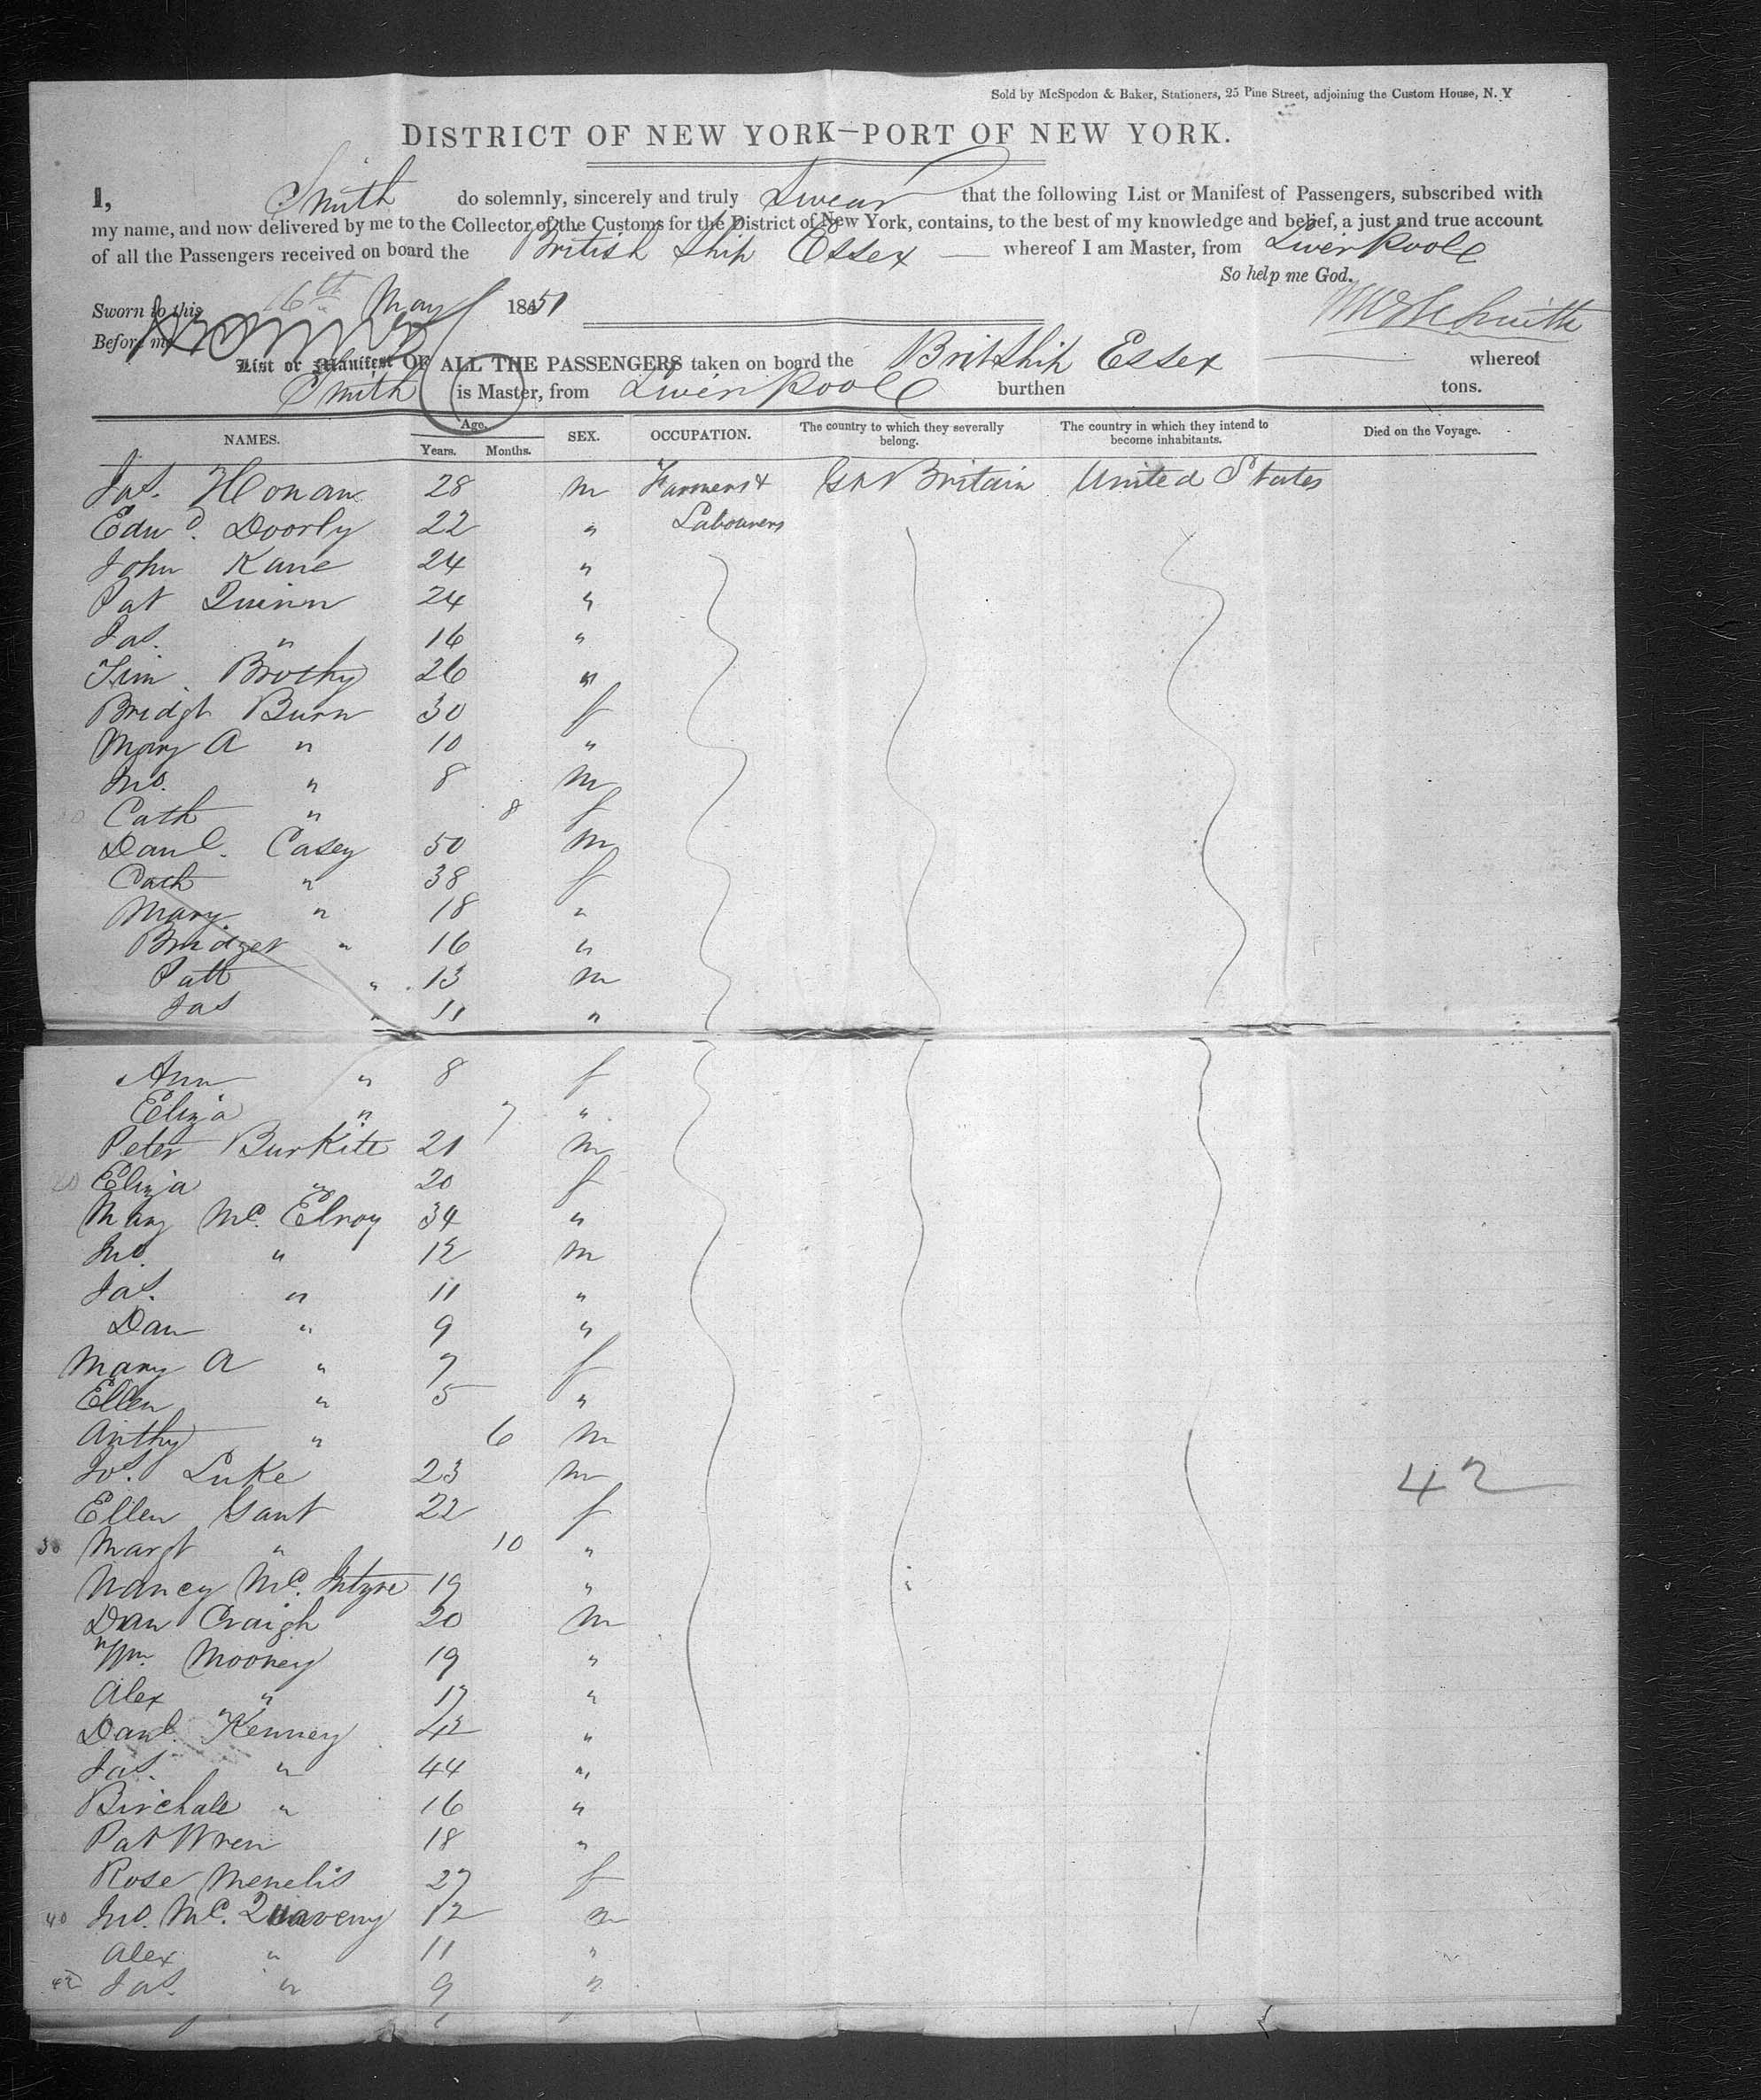 Sold by McSpedon & Baker, Stationers, 25 Pine Street, adjoining the Custom House, N. Y
DISTRICT OF NEW YORK—PORT OF NEW YORK.
I, Smith do solemnly, sincerely and truly Swear that the following List or Manifest of Passengers, subscribed with
my name, and now delivered by me to the Collector of the Customs for the District of New York, contains, to the best of my knowledge and belief, a just and true account
of all the Passengers received on board the British Ship Essex whereof I am Master, from Liverpool
So help me God.
Sworn to this 16th May 1851
Smith
Before me
List or Manifest OF ALL THE PASSENGERS taken on board the Brit Ship Essex whereof
Smith is Master, from Liverpool burthen tons.
NAMES. Age. Years. Months. SEX. OCCUPATION. The country to which they severally belong. The country in which they intend to become inhabitants. Died on the Voyage.
Jas. Honan 28 m Farmers & Gt Britain United States
Edwd. Doorly 22 " Labourers
John Kane 24 "
Pat Quinn 24 "
Jas. " 16 "
Tim Brothy 26 "
Bridgt Burn 30 f
Mary A " 10 "
Jno. " 8 m
10 Cath " 8 f
Danl. Casey 50 m
Cath " 38 f
Mary " 18 "
Bridget " 16 "
Patt " 13 m
Jas " 11 "
Ann " 8 f
Eliza " 7 "
Peter Burkite 21 m
20 Eliza " 20 f
Mary Mc. Elroy 34 "
Jno. " 12 m
Jas. " 11 "
Dan " 9 "
Mary A " 7 f
Ellen " 5 "
Anthy " 6 m
Jos. Luke 23 m
42
Ellen Gant 22 f
30 Margt " 10 "
Nancy Mc. Intyre 19 "
Dan Craigh 20 m
Wm. Mooney 19 "
Alex " 17 "
Danl. Kenney 42 "
Jas. " 44 "
Birchall " 16 "
Pat Wren 18 "
Rose Menelis 27 f
40 Jno. Mc. Quaveny 12 m
Alex " 11 "
42 Jas. " 9 "